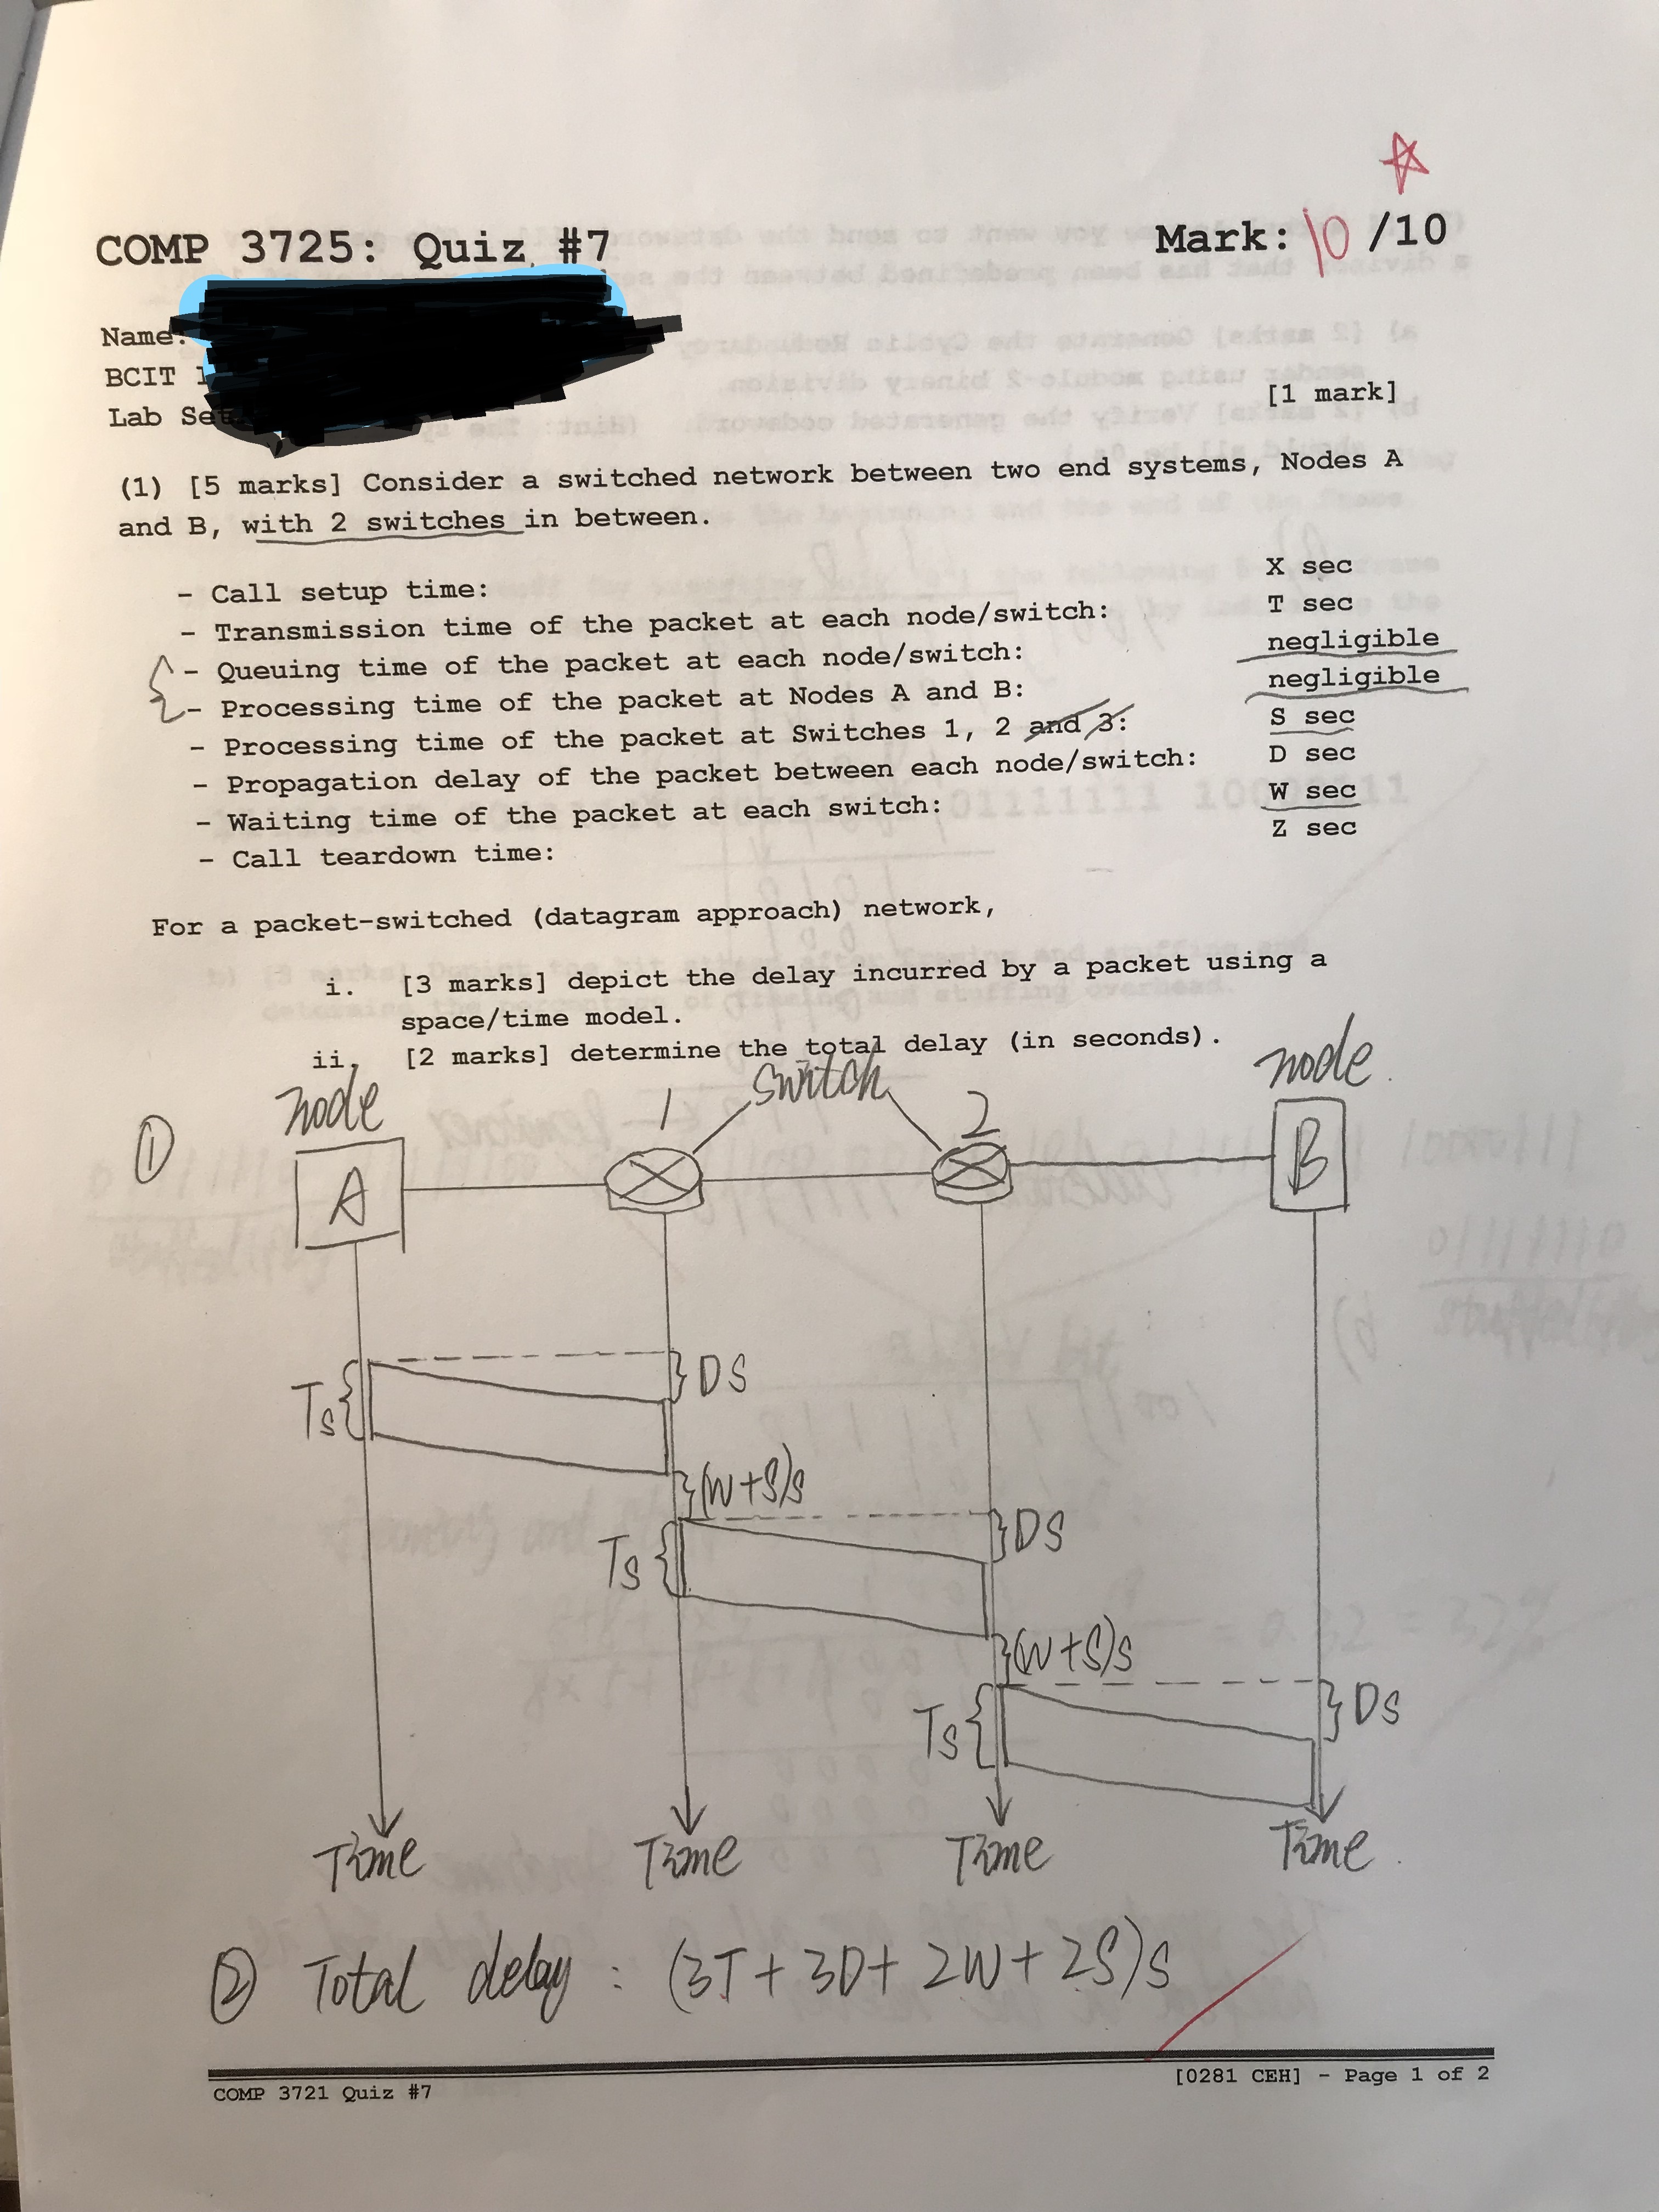 COMP 3725: Quiz #7
Mark: 10 /10
Name:
BCIT
Lab Set
[1 mark]
(1) [5 marks] Consider a switched network between two end systems, Nodes A
and B, with 2 switches in between.
- Call setup time: X sec
- Transmission time of the packet at each node/switch: T sec
- Queuing time of the packet at each node/switch: negligible
- Processing time of the packet at Nodes A and B: negligible
- Processing time of the packet at Switches 1, 2 and 3: S sec
- Propagation delay of the packet between each node/switch: D sec
- Waiting time of the packet at each switch: W sec
- Call teardown time: Z sec
For a packet-switched (datagram approach) network,
i. [3 marks] depict the delay incurred by a packet using a
space/time model.
ii. [2 marks] determine the total delay (in seconds).
① node 1 switch 2 node
A B
Ts DS
(W+S)s
Ts DS
(W+S)s
Ts DS
Time Time Time Time
② Total delay : (3T + 3D + 2W + 2S)s
COMP 3721 Quiz #7
[0281 CEH] - Page 1 of 2